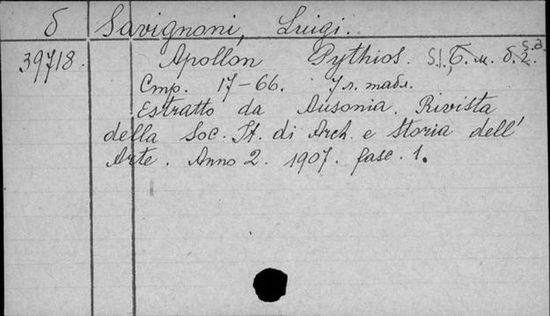 б Savignoni, Luigi.
39718. Apollon Pythios. S.l., Б. м. б. г. s.a.
Стр. 17-66. 7 л. табл.
Estratto da Ausonia. Rivista
della Soc. It. di Arch. e Storia dell'
Arte. Anno 2. 1907. fasc. 1.